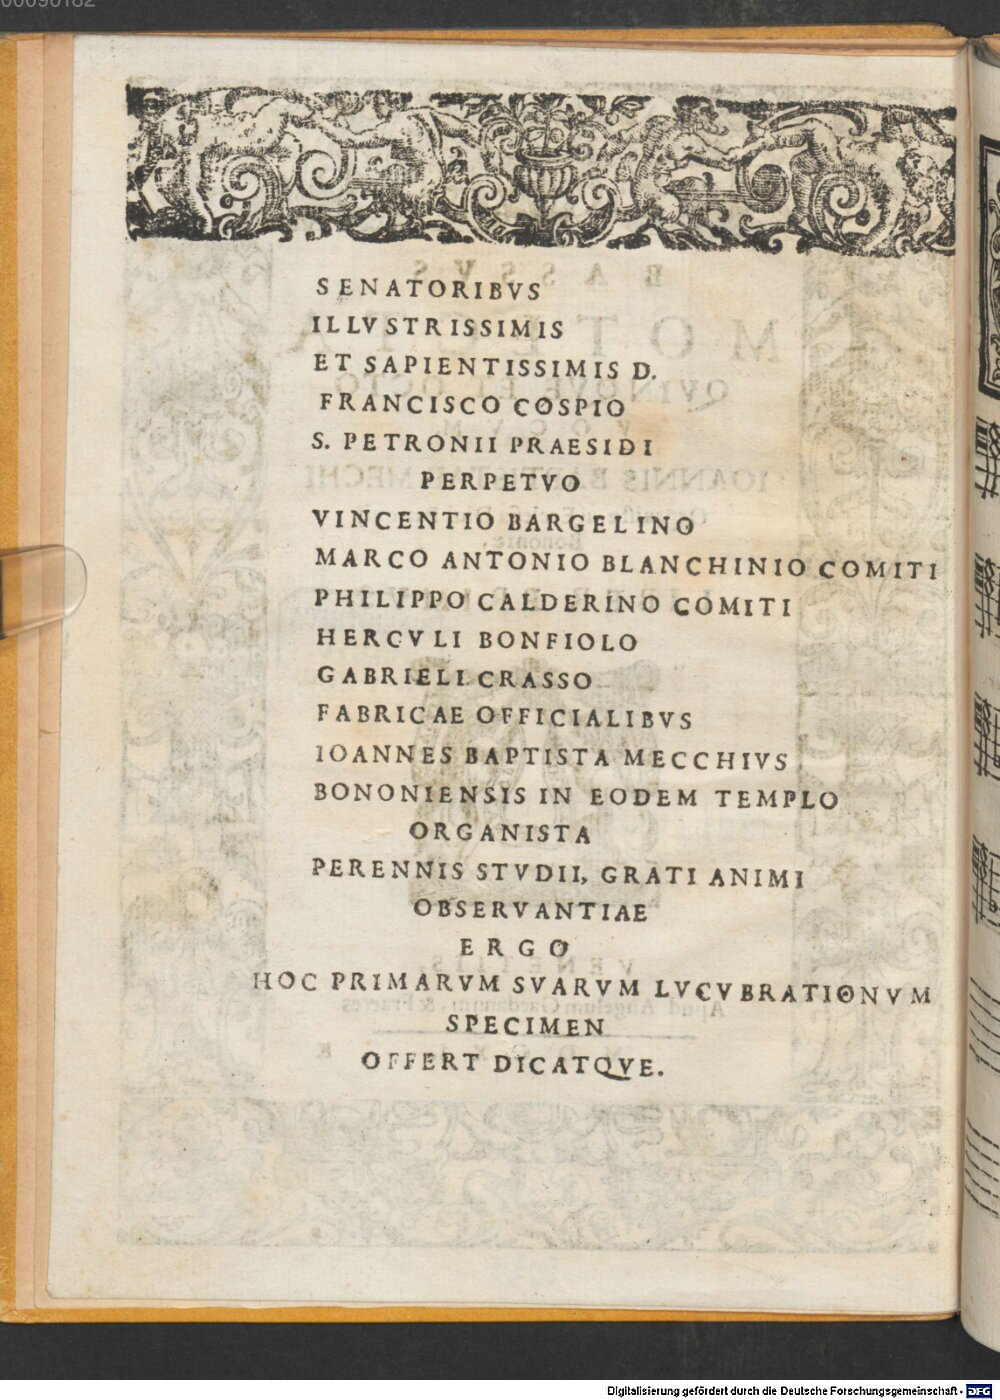 SENATORIBVS
ILLVSTRISSIMIS
ET SAPIENTISSIMIS D.
FRANCISCO COSPIO
S. PETRONII PRAESIDI
PERPETVO
VINCENTIO BARGELINO
MARCO ANTONIO BLANCHINIO COMITI
PHILIPPO CALDERINO COMITI
HERCVLI BONFIOLO
GABRIELI CRASSO
FABRICAE OFFICIALIBVS
IOANNES BAPTISTA MECCHIVS
BONONIENSIS IN EODEM TEMPLO
ORGANISTA
PERENNIS STVDII, GRATI ANIMI
OBSERVANTIAE
ERGO
HOC PRIMARVM SVARVM LVCVBRATIONVM
SPECIMEN
OFFERT DICATQVE.
Digitalisierung gefördert durch die Deutsche Forschungsgemeinschaft - DFG